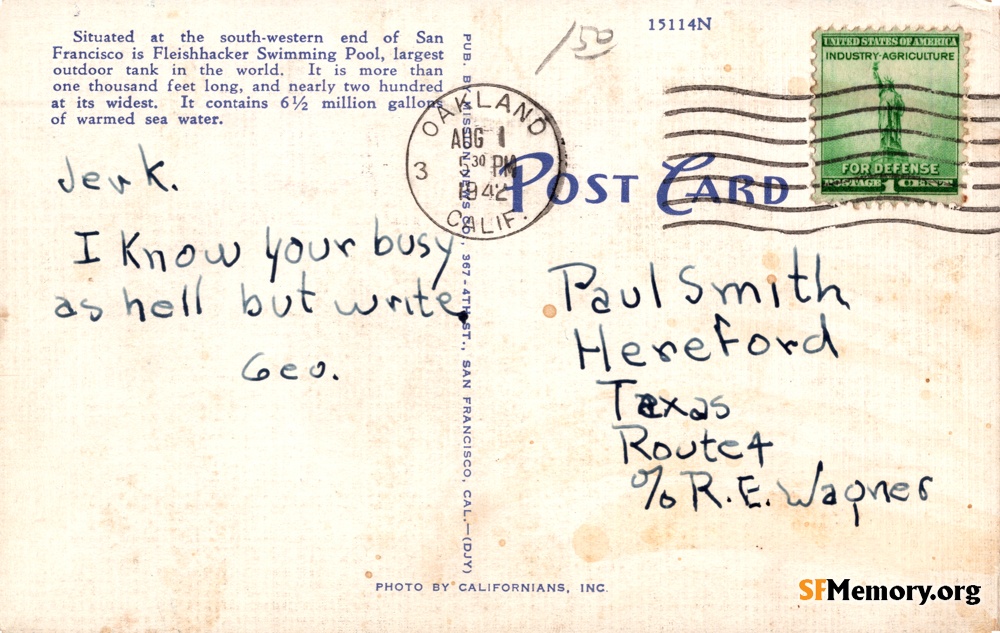 Situated at the south-western end of San
Francisco is Fleishhacker Swimming Pool, largest
outdoor tank in the world. It is more than
one thousand feet long, and nearly two hundred
at its widest. It contains 6½ million gallons
of warmed sea water.
Jerk.
I Know your busy
as hell but write.
Geo.
PUB. BY MISSION NEWS CO., 367-4TH ST., SAN FRANCISCO, CAL.—(DJY)
150
15114N
OAKLAND
AUG 1
3 530 PM
1942
CALIF.
POST CARD
UNITED STATES OF AMERICA
INDUSTRY-AGRICULTURE
FOR DEFENSE
POSTAGE 1 CENTS
Paul Smith
Hereford
Texas
Route 4
% R.E. Wagner
PHOTO BY CALIFORNIANS, INC.
SFMemory.org